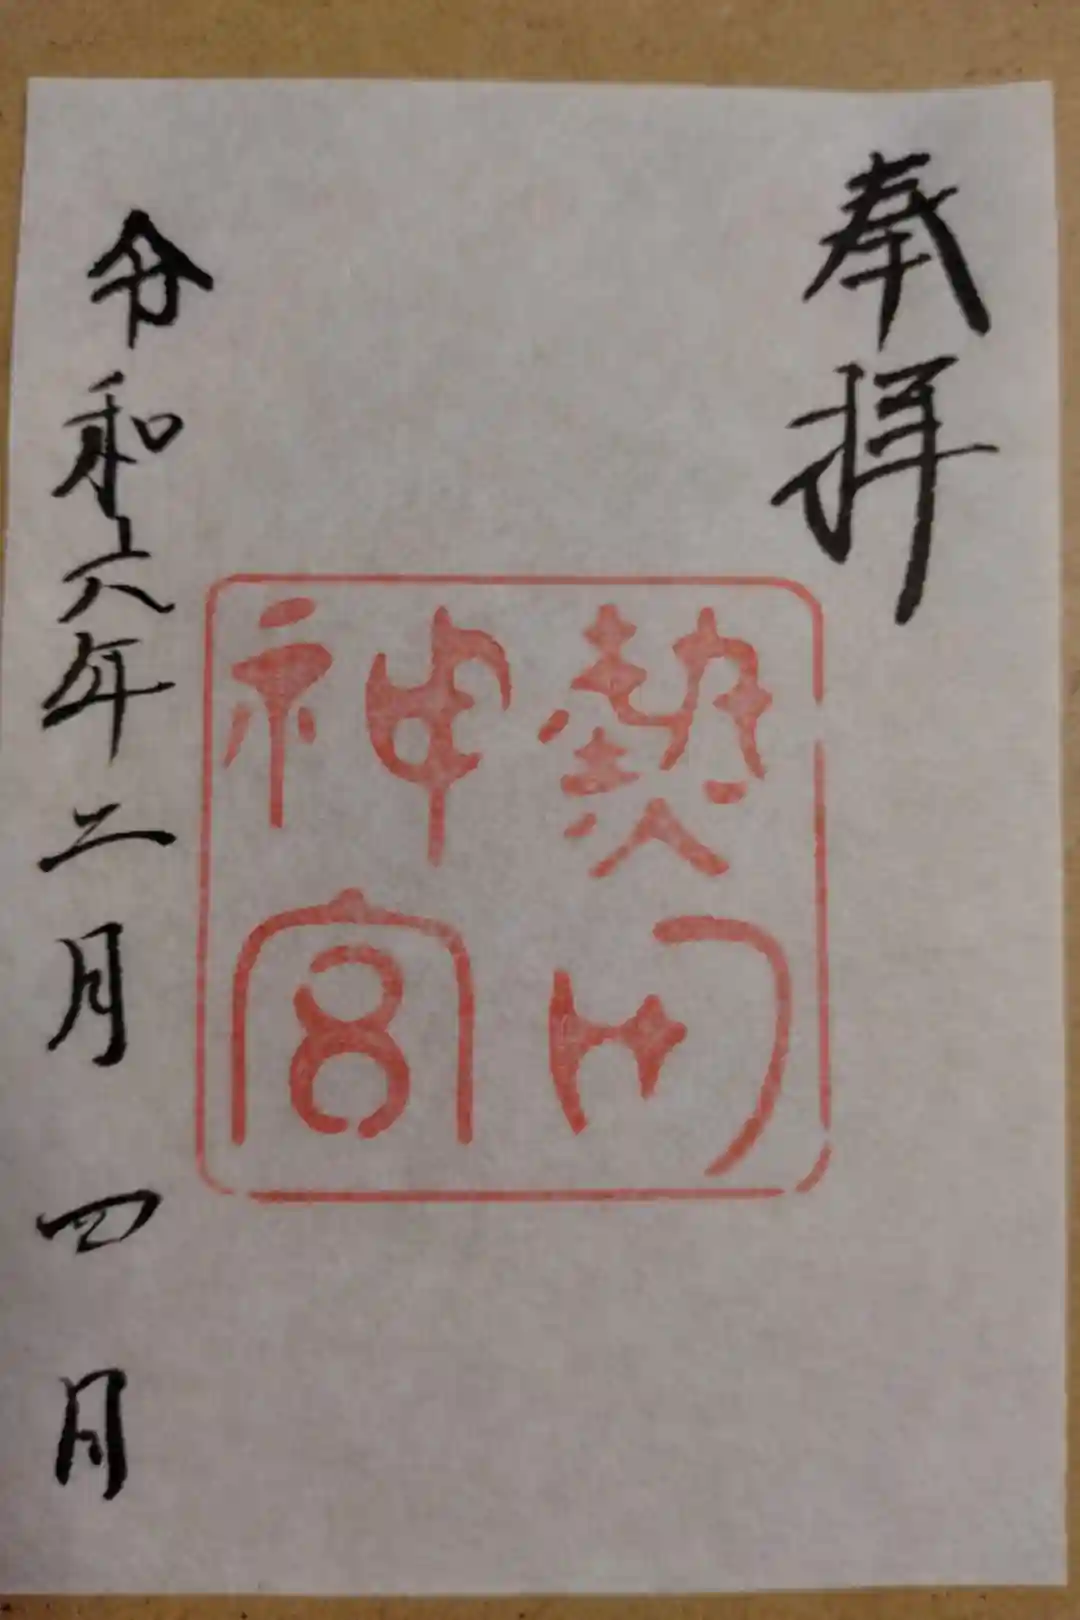 奉拝
熱田
神宮
令和六年二月四日